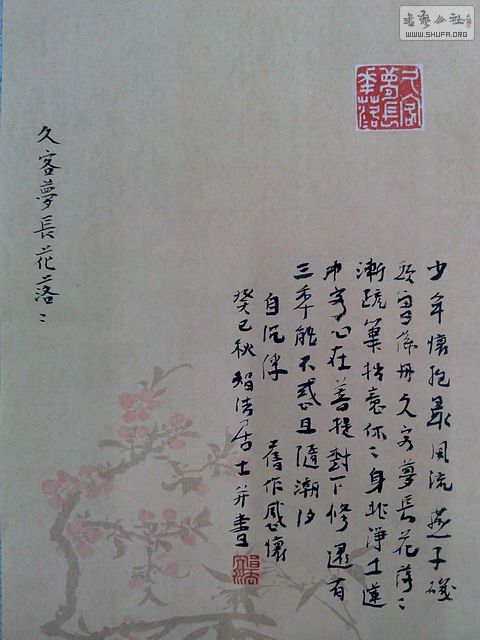 書藝公社
WWW.SHUFA.ORG
久客夢長華落
少年懷抱最風流 燕子磯
頭雪係舟 久客夢長花落〻
漸疏筆意休〻 身非淨土蓮
中客 心在菩提下修 還有
三年能不惑 且隨潮汐
自沉浮 舊作感懷
癸巳秋 智清居士并書
久客夢長花落〻